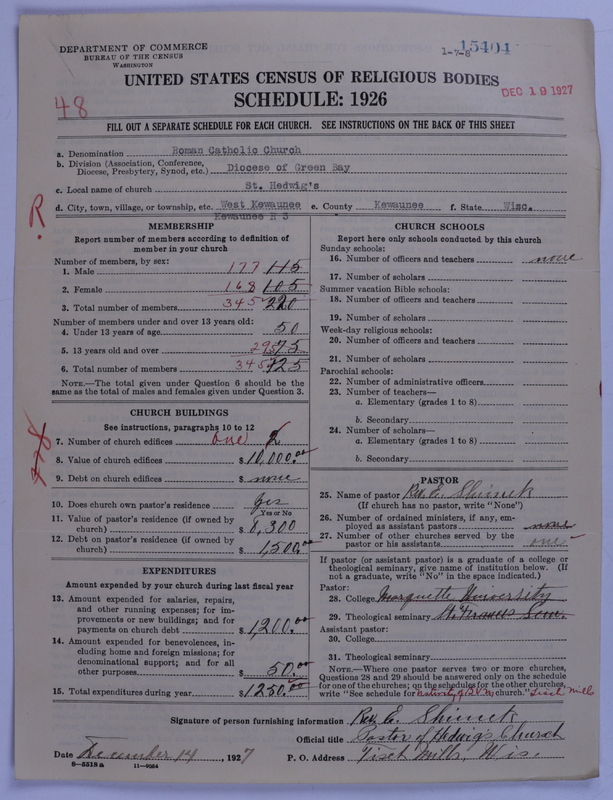 DEPARTMENT OF COMMERCE
BUREAU OF THE CENSUS
WASHINGTON
1-7-8 15404
UNITED STATES CENSUS OF RELIGIOUS BODIES
SCHEDULE: 1926
DEC 19 1927
48
FILL OUT A SEPARATE SCHEDULE FOR EACH CHURCH. SEE INSTRUCTIONS ON THE BACK OF THIS SHEET
a. Denomination Roman Catholic Church
b. Division (Association, Conference, Diocese, Presbytery, Synod, etc.) Diocese of Green Bay
c. Local name of church St. Hedwig's
d. City, town, village, or township, etc. West Kewaunee e. County Kewaunee f. State Wisc.
Kewaunee R 3
R
MEMBERSHIP
Report number of members according to definition of
member in your church
Number of members, by sex:
1. Male 177 115
2. Female 168 105
3. Total number of members 345 220
Number of members under and over 13 years old:
4. Under 13 years of age 50
5. 13 years old and over 295 75
6. Total number of members 345 125
NOTE.—The total given under Question 6 should be the
same as the total of males and females given under Question 3.
CHURCH BUILDINGS
See instructions, paragraphs 10 to 12
7. Number of church edifices one 2
8. Value of church edifices $ 10,000.00
9. Debt on church edifices $ none
10. Does church own pastor's residence yes
Yes or No
11. Value of pastor's residence (if owned by
church) $ 8,300
12. Debt on pastor's residence (if owned by
church) $ 1,500.00
EXPENDITURES
Amount expended by your church during last fiscal year
13. Amount expended for salaries, repairs,
and other running expenses; for im-
provements or new buildings; and for
payments on church debt $ 1200.00
14. Amount expended for benevolences, in-
cluding home and foreign missions; for
denominational support; and for all
other purposes $ 50.00
15. Total expenditures during year $ 1250.00
CHURCH SCHOOLS
Report here only schools conducted by this church
Sunday schools:
16. Number of officers and teachers none
17. Number of scholars
Summer vacation Bible schools:
18. Number of officers and teachers
19. Number of scholars
Week-day religious schools:
20. Number of officers and teachers
21. Number of scholars
Parochial schools:
22. Number of administrative officers
23. Number of teachers—
a. Elementary (grades 1 to 8)
b. Secondary
24. Number of scholars—
a. Elementary (grades 1 to 8)
b. Secondary
PASTOR
25. Name of pastor Rev. E.
(If church has no pastor, write "None")
26. Number of ordained ministers, if any, em-
ployed as assistant pastors none
27. Number of other churches served by the
pastor or his assistants one
If pastor (or assistant pastor) is a graduate of a college or
theological seminary, give name of institution below. (If
not a graduate, write "No" in the space indicated.)
Pastor:
28. College Marquette University
29. Theological seminary St. Francis Sem.
Assistant pastor:
30. College
31. Theological seminary
NOTE.—Where one pastor serves two or more churches,
Questions 28 and 29 should be answered only on the schedule
for one of the churches; on the schedules for the other churches,
write "See schedule for Nativity of B.V.M. church." Tisch Mills
Signature of person furnishing information Rev. E.
Official title Pastor of Hedwigs Church
Date December 14, 1927 P. O. Address Tisch Mills, Wis.
8—5518a 11—9054